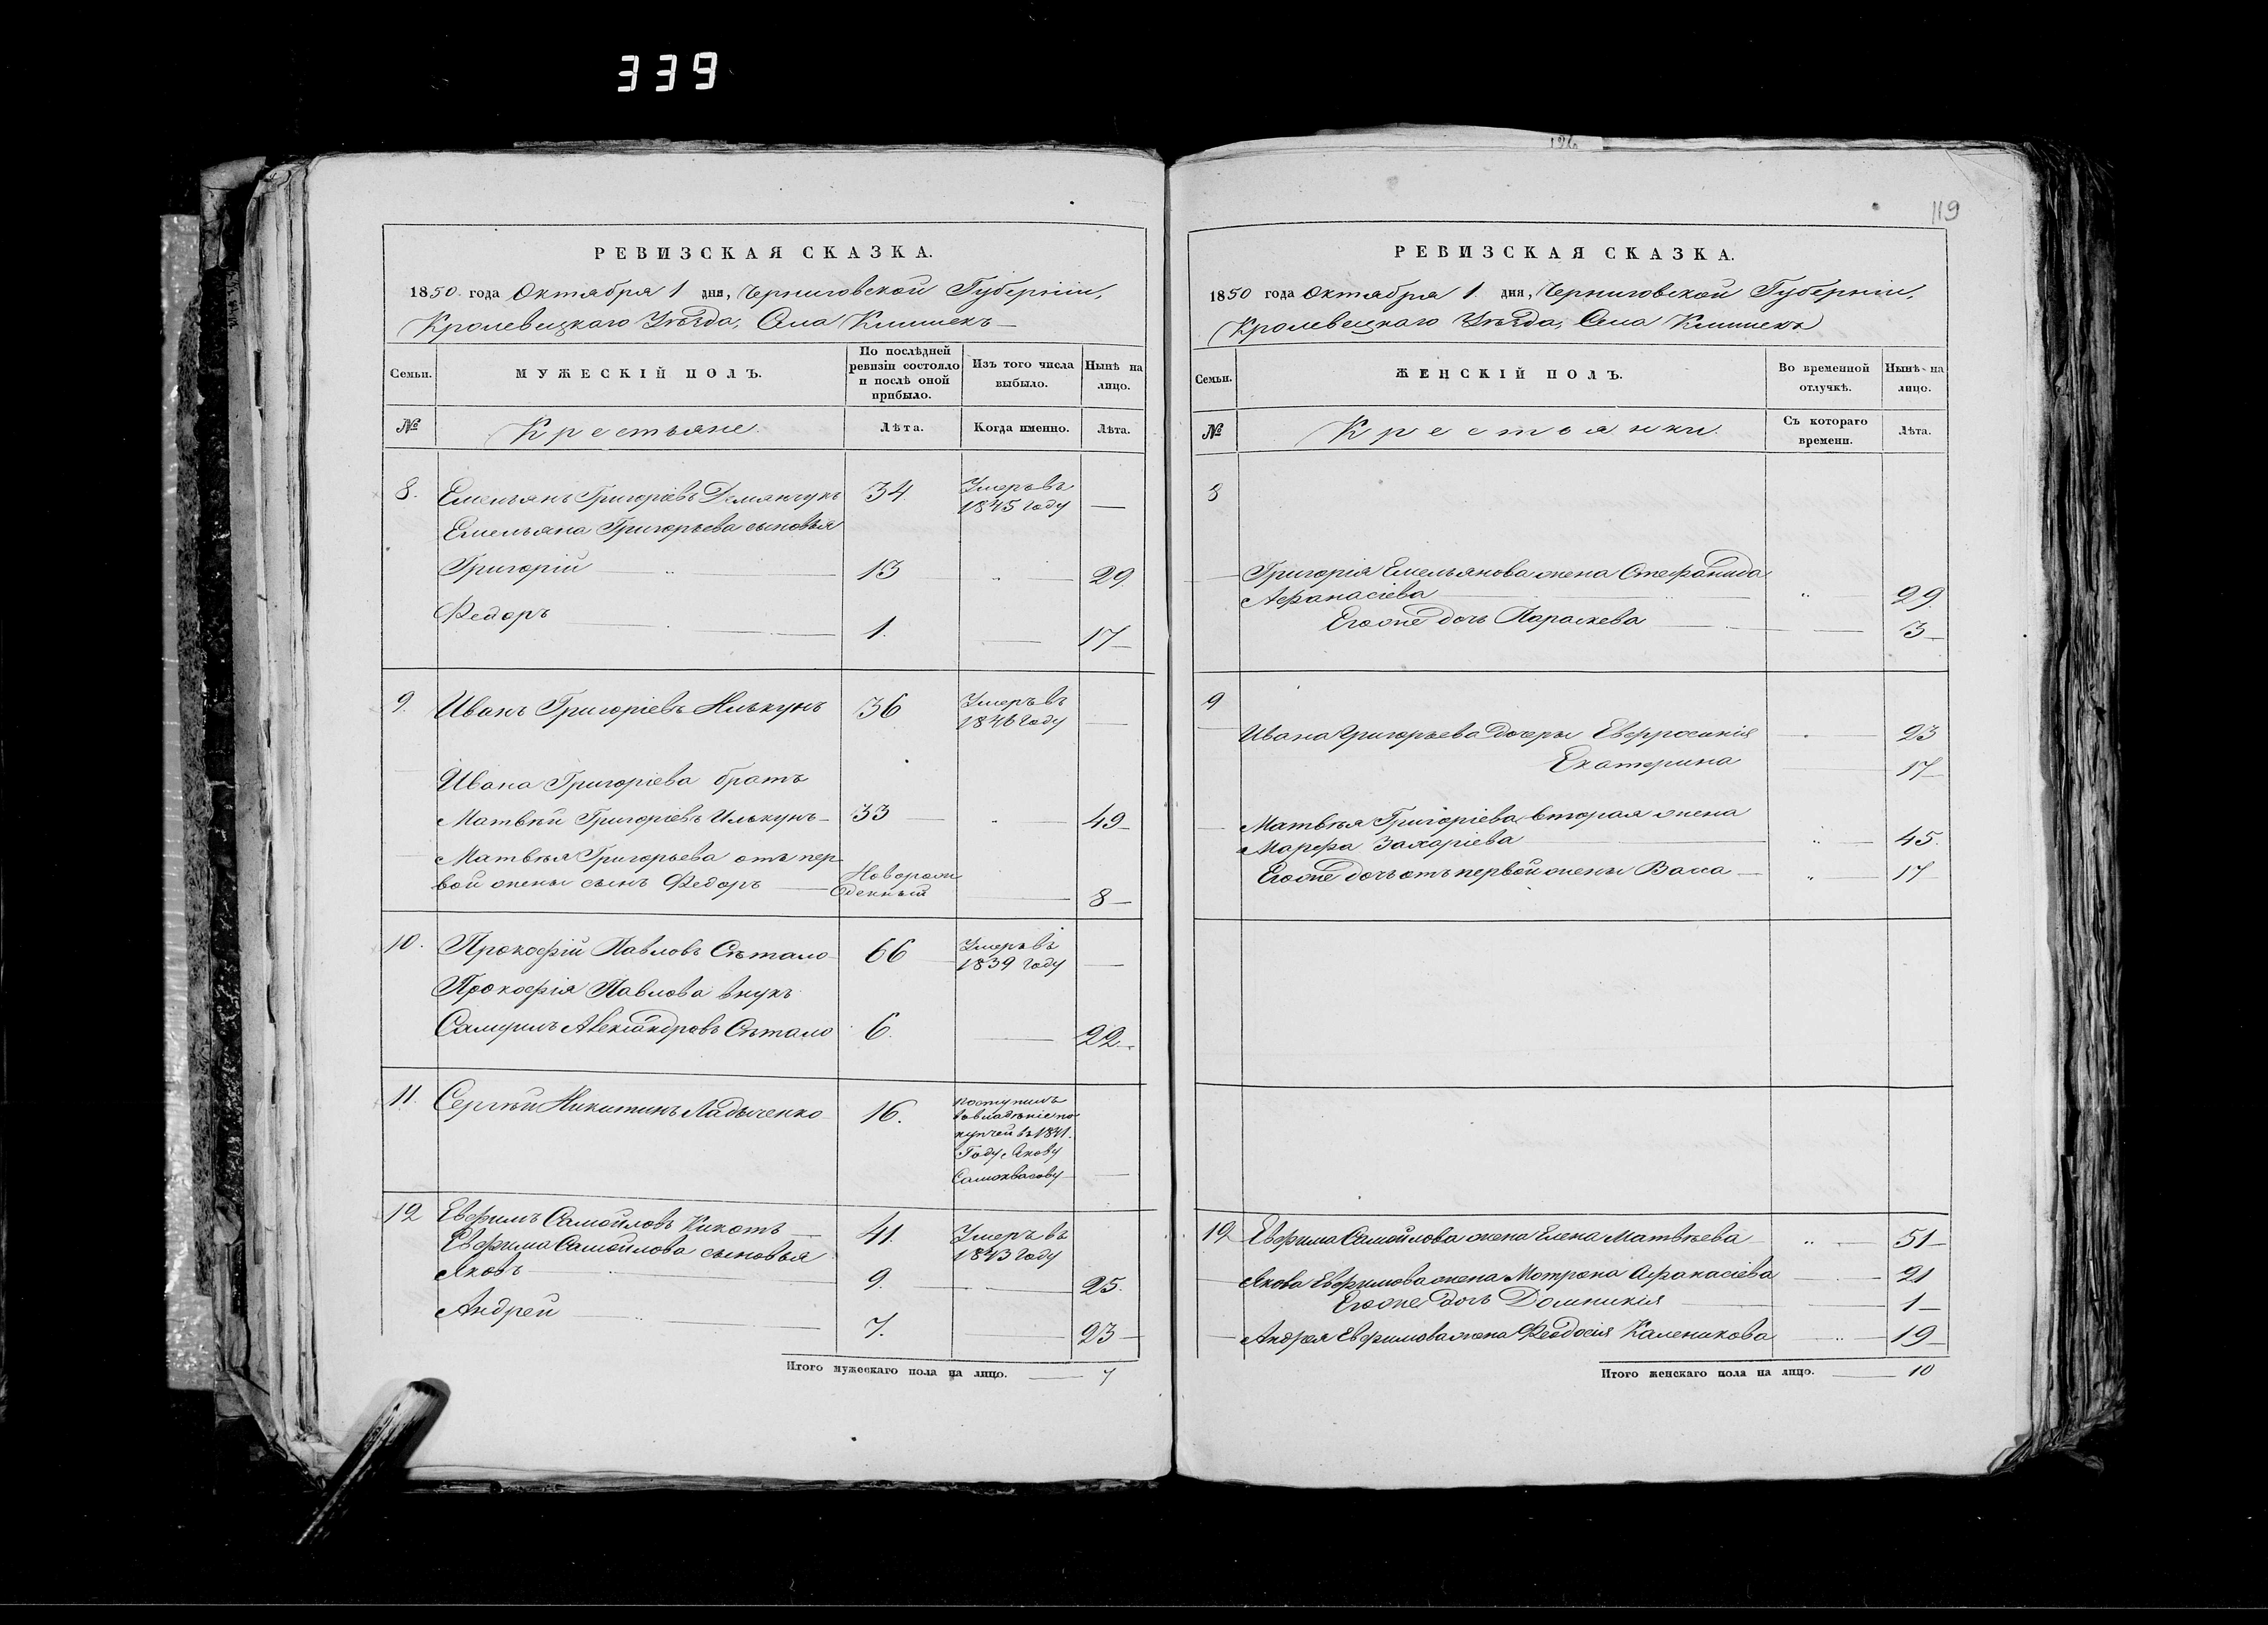 339
126
РЕВИЗСКАЯ СКАЗКА.
1850. года Октября 1 дня, Черниговской Губерніи,
Кролевецкаго Уѣзда, Села Клишекъ
Семьи.
МУЖЕСКІЙ ПОЛЪ.
По послѣдней
ревизіи состояло
и послѣ оной
прибыло.
Изъ того числа
выбыло.
Нынѣ на
лицо.
№
Крестьяне.
Лѣта.
Когда именно.
Лѣта.
8. Емельянъ Григоріевъ Демянчукъ 34 Умеръ въ
1845 году —
Емельяна Григорьева сыновья
Григорій 13 29.
Федоръ 1. 17
9. Иванъ Григоріевъ Илькунъ 36 Умеръ въ
1846 году —
Ивана Григоріева братъ
Матвѣй Григоріевъ Илькунъ 33 49
Матвѣя Григорьева отъ пер
вой жены сынъ Федоръ Новорож
денный 8
10. Прокофій Павловъ Сѣтало 66 Умеръ въ
1839 году —
Прокофія Павлова внукъ
Самуилъ Александровъ Сѣтало 6. 22.
11. Сергѣй Никитинъ Ладыченко 16. поступилъ
во владѣніе по
купчей въ 1841.
Году, Якову
Самоквасову —
12 Евфимъ Самойловъ Кикоть 41. Умеръ въ
1843 году
Евфима Самойлова сыновья
Яковъ 9. 25.
Андрей 7. 23
Итого мужескаго пола на лицо. 7
119
РЕВИЗСКАЯ СКАЗКА.
1850 года Октября 1. дня, Черниговской Губерніи,
Кролевецкаго Уѣзда, Села Клишекъ
Семьи.
ЖЕНСКІЙ ПОЛЪ.
Во временной
отлучкѣ.
Нынѣ на
лицо.
№
Крестьянки.
Съ котораго
времени.
Лѣта.
8
Григорія Емельянова жена Стефанида
Афанасіева 29.
Его же дочь Параскева 3
9
Ивана Григорьева дочери Евфросинія 23
Екатерина 17
Матвѣя Григоріева вторая жена
Марфа Захаріева 45.
Его же дочь отъ первой жены Васса 17
12 Евфима Самойлова жена Елена Матвѣева 51
Якова Евфимова жена Мотрона Афанасіева 21
Его же дочь Домникія 1
Андрея Евфимова жена Феодосія Каленикова 19
Итого женскаго пола на лицо. 10